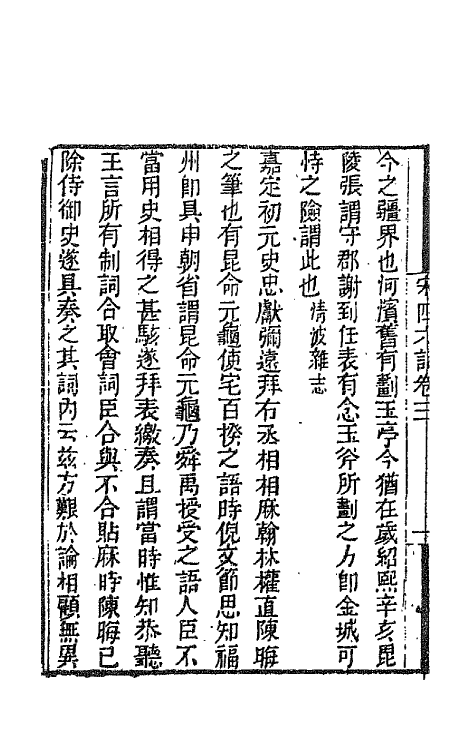 宋四六話卷三
今之疆界也河濱舊有劃玉亭今猶在歲紹熙辛亥毘
陵張謂守郡謝到任表有念玉斧所劃之力卽金城可
恃之險謂此也清波雜志
嘉定初元史忠獻彌遠拜右丞相相麻翰林權直陳晦
之筆也有昆命元龜使宅百揆之語時倪文節思知福
州卽具申朝省謂昆命元龜乃舜禹授受之語人臣不
當用史相得之甚駭遂拜表繳奏且謂當時惟知恭聽
王言所有制詞合取會詞臣合與不合貼麻時陳晦已
除侍御史遂具奏之其詞內云茲方艱於論相顧無異